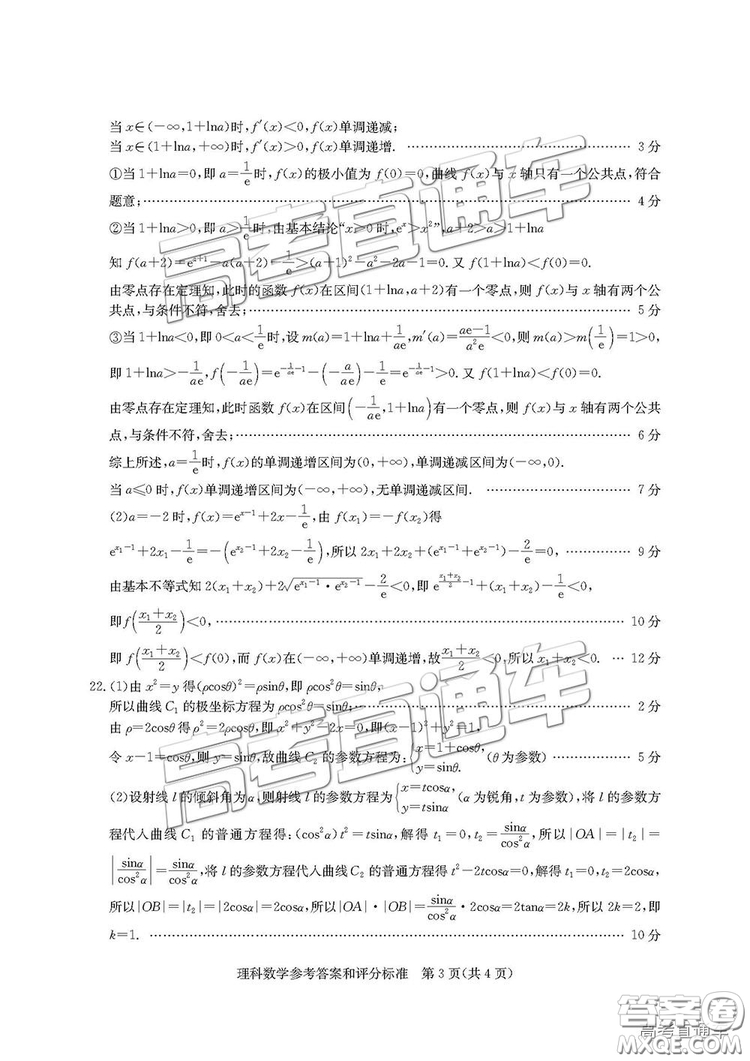 当 x∈(-∞,1+lna)时,f′(x)<0,f(x)单调递减;
当 x∈(1+lna,+∞)时,f′(x)>0,f(x)单调递增. …… 3 分
①当 1+lna=0,即 a=1/e时,f(x)的极小值为 f(0)=0,曲线 f(x)与 x 轴只有一个公共点,符合
题意; …… 4 分
②当 1+lna>0,即 a>1/e时,由基本结论“x>0 时,eˣ>x²”,a+2>a>1+lna
知 f(a+2)=eᵃ⁺¹-a(a+2)-1/e>(a+1)²-a²-2a-1=0.又 f(1+lna)<f(0)=0.
由零点存在定理知,此时的函数 f(x)在区间(1+lna,a+2)有一个零点,则 f(x)与 x 轴有两个公
共点,与条件不符,舍去; …… 5 分
③当 1+lna<0,即 0<a<1/e时,设 m(a)=1+lna+1/(ae),m′(a)=(ae-1)/(a²e)<0,则 m(a)>m(1/e)=1>0,
即 1+lna>-1/(ae),f(-1/(ae))=e^(-1/(ae)-1)-(-a/(ae))-1/e=e^(-1/(ae)-1)>0.又 f(1+lna)<f(0)=0.
由零点存在定理知,此时函数 f(x)在区间(-1/(ae),1+lna)有一个零点,则 f(x)与 x 轴有两个公共
点,与条件不符,舍去; …… 6 分
综上所述,a=1/e时,f(x)的单调递增区间为(0,+∞),单调递减区间为(-∞,0).
当 a≤0 时,f(x)单调递增区间为(-∞,+∞),无单调递减区间. …… 7 分
(2)a=-2 时,f(x)=e^(x-1)+2x-1/e,由 f(x₁)=-f(x₂)得
e^(x₁-1)+2x₁-1/e=-(e^(x₂-1)+2x₂-1/e),所以 2x₁+2x₂+(e^(x₁-1)+e^(x₂-1))-2/e=0, …… 9 分
由基本不等式知 2(x₁+x₂)+2√(e^(x₁-1)·e^(x₂-1))-2/e<0,即 e^((x₁+x₂)/2-1)+(x₁+x₂)-1/e<0,
即f((x₁+x₂)/2)<0, …… 10 分
即 f((x₁+x₂)/2)<f(0),而 f(x)在(-∞,+∞)单调递增,故(x₁+x₂)/2<0,所以 x₁+x₂<0. … 12 分
22.(1)由 x²=y 得(ρcosθ)²=ρsinθ,即 ρcos²θ=sinθ,
所以曲线 C₁ 的极坐标方程为 ρcos²θ=sinθ; …… 2 分
由 ρ=2cosθ得 ρ²=2ρcosθ,即 x²+y²-2x=0,即(x-1)²+y²=1,
令 x-1=cosθ,则 y=sinθ,故曲线 C₂ 的参数方程为:{x=1+cosθ, y=sinθ. (θ 为参数) …… 5 分
(2)设射线 l 的倾斜角为 α,则射线 l 的参数方程为{x=tcosα, y=tsinα (α 为锐角,t 为参数),将 l 的参数方
程代入曲线 C₁ 的普通方程得:(cos²α)t²=tsinα,解得 t₁=0,t₂=sinα/cos²α,所以|OA|=|t₂|=
|sinα/cos²α|=sinα/cos²α,将 l 的参数方程代入曲线 C₂ 的普通方程得 t²-2tcosα=0,解得 t₁=0,t₂=2cosα,
所以|OB|=|t₂|=|2cosα|=2cosα,所以|OA|·|OB|=sinα/cos²α·2cosα=2tanα=2k,所以 2k=2,即
k=1. …… 10 分
理科数学参考答案和评分标准 第 3 页(共 4 页)
高考直通车
高考直通车
高考直通车
答案圈
高考直通车
MXQE.COM